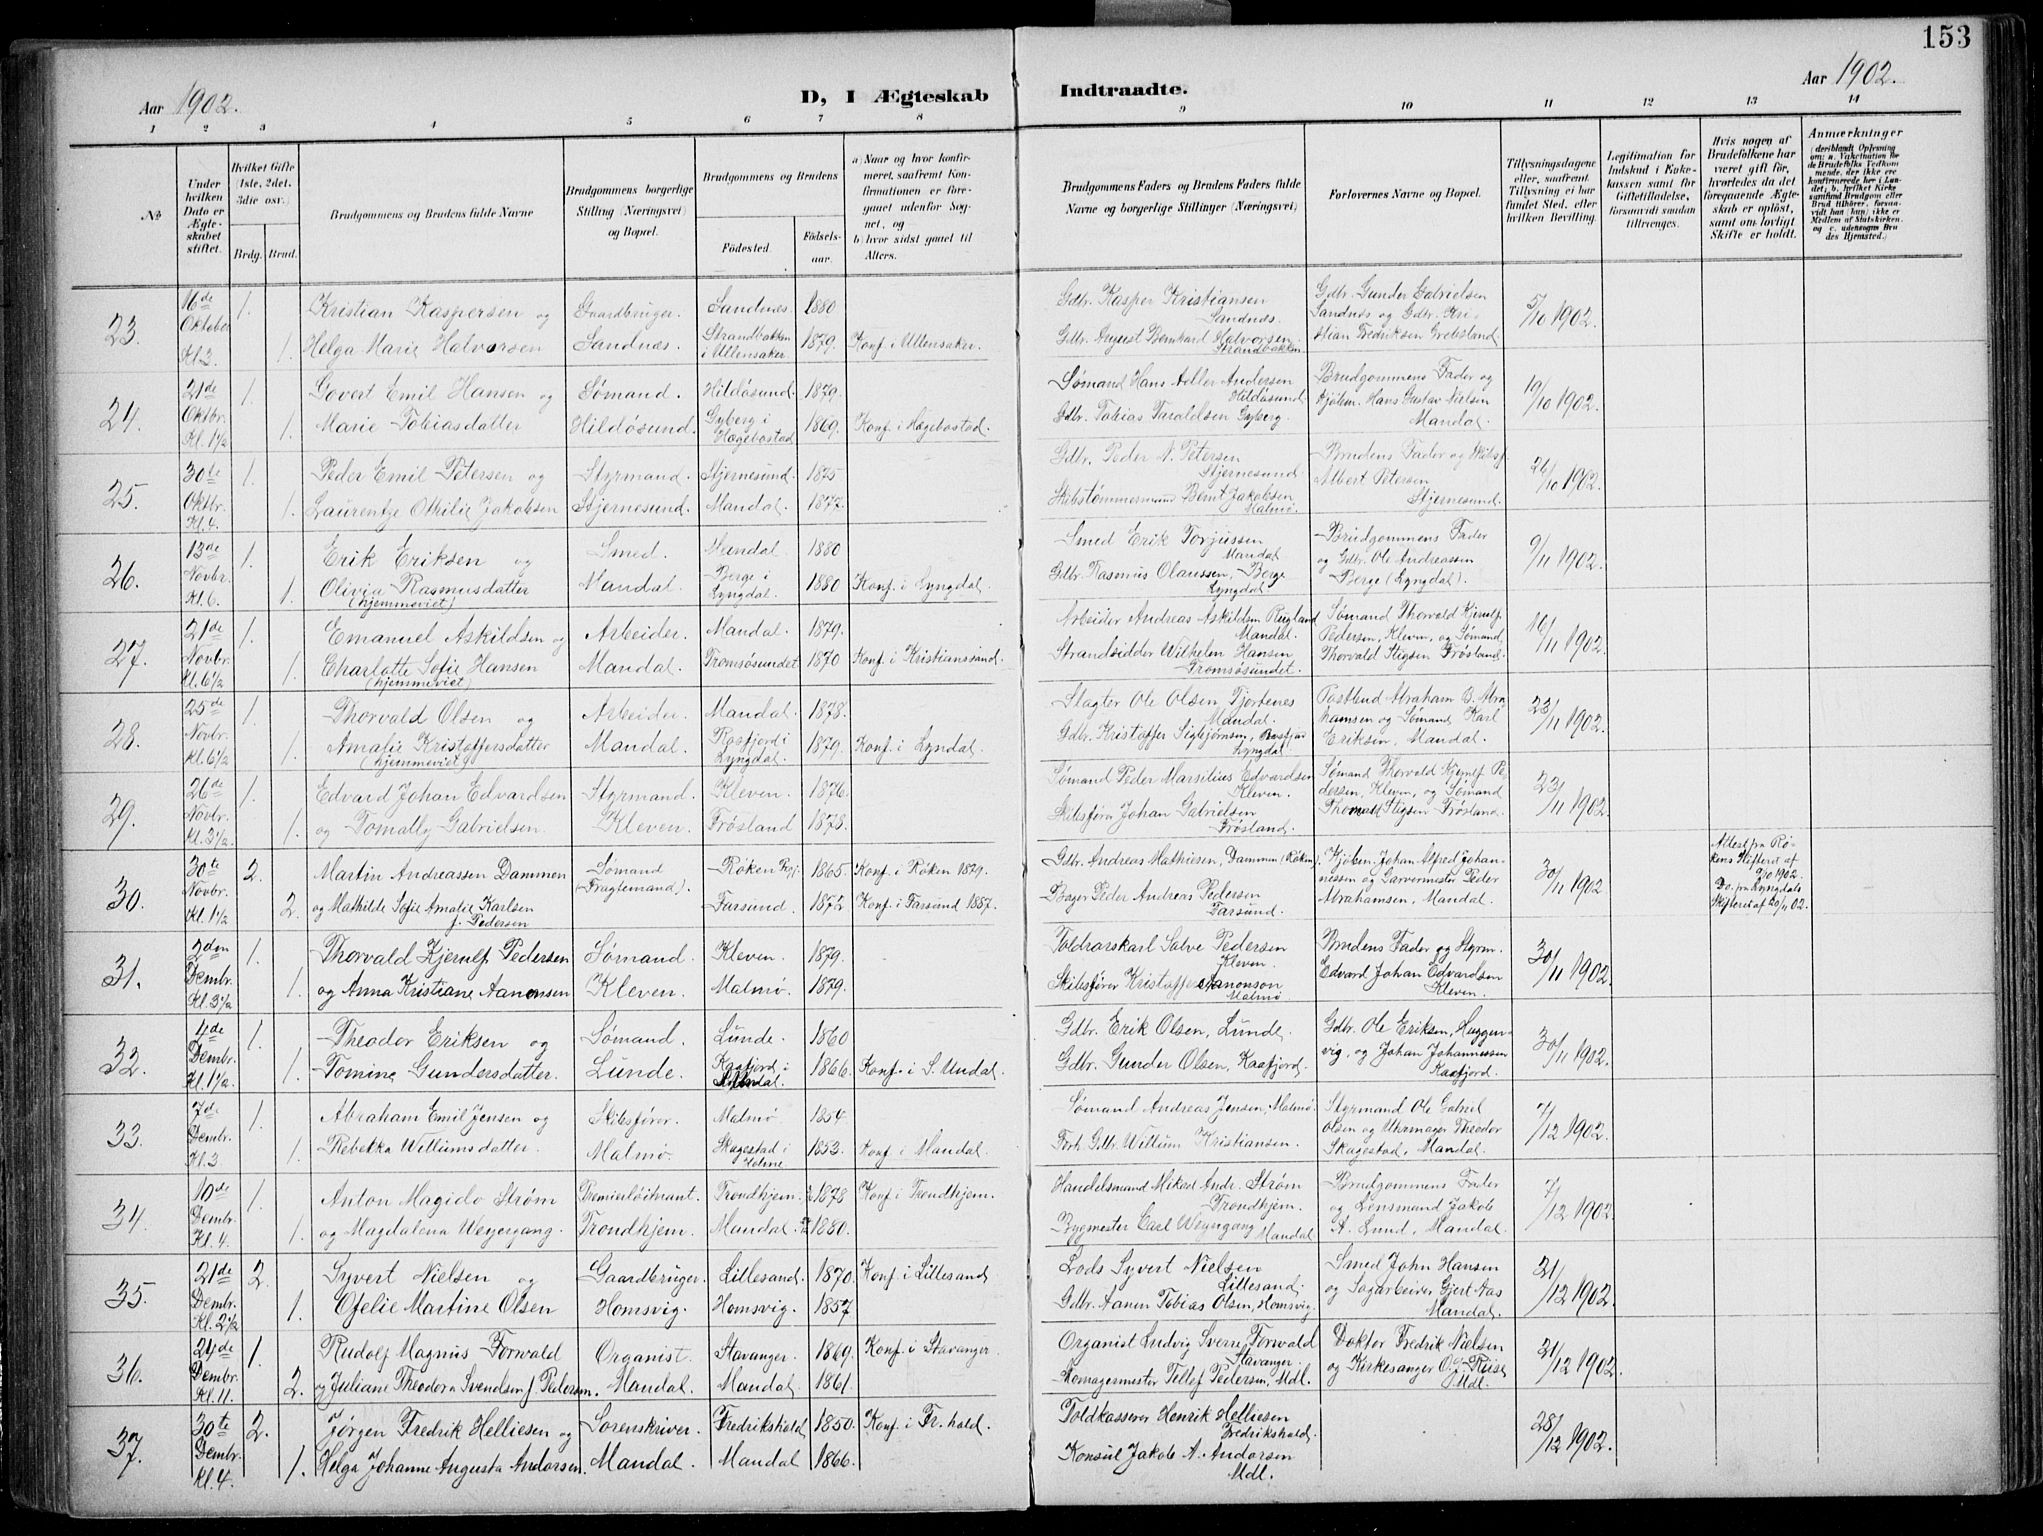 153
Aar 1902.
D, I Ægteskab Indtraadte.
Aar 1902.
1 2 3 4 5 6 7 8 9 10 11 12 13 14
No
Under hvilken Dato er Ægteskabet stiftet.
Hvilket Gifte (1ste, 2det, 3die osv.)
Brdg. Brud.
Brudgommens og Brudens fulde Navne
Brudgommens borgerlige Stilling (Næringsvei) og Bopæl.
Brudgommens og Brudens
Fødested. Fødselsaar.
a) Naar og hvor konfirmeret, saafremt Konfirmationen er foregaaet udenfor Sognet, og
b) hvor sidst gaaet til Alters.
Brudgommens Faders og Brudens Faders fulde Navne og borgerlige Stillinger (Næringsvei)
Forlovernes Navne og Bopæl.
Tillysningsdagene eller, saafremt Tillysning ei har fundet Sted, efter hvilken Bevilling.
Legitimation for Indskud i Enkekassen samt for Giftetilladelse, forsaavidt saadan tiltrænges.
Hvis nogen af Brudefolkene har været gift før, hvorledes da det foregaaende Ægteskab er opløst, samt om lovligt Skifte er holdt.
Anmærkninger
23. 16de Oktober Kl. 3. 1. 1.
Kristian Kaspersen og
Helga Marie Halvorsen
Gaardbruger.
Sandnæs.
Sandnæs 1880
Strandbakken i Ullensaker. 1879. Konf. i Ullensaker.
Gdbr. Kasper Kristiansen
Sandnæs.
Gdbr. August Bernhard Halvorsen
Strandbakken
Gdbr. Gunder Gabrielsen
Sandnæs og Gdbr. Kri-
stian Fredriksen Grebsland.
5/10 1902.
24. 21de Oktbr. Kl. 1½ 1. 1.
Govert Emil Hansen og
Marie Tobiasdatter
Sømand.
Hildøsund.
Hildøsund. 1879.
Gyberg i Hægebostad 1869. Konf. i Hægebostad.
Sømand Hans Adler Andersen
Hildøsund.
Gdbr. Tobias Taraldsen Gyberg.
Brudgommens Fader og
Kjøbm. Hans Gustav Nielsen
Mandal.
19/10 1902.
25. 30de Oktbr. Kl. 4. 1. 1.
Peder Emil Petersen og
Laurentze Othilie Jakobsen
Styrmand.
Stjernesund.
Stjernesund. 1875
Mandal. 1877.
Gdbr. Peder N. Petersen
Stjernesund
Skibstømmermand Bernt Jakobsen
Malmø.
Brudens Fader og Skibsf.
Albert Petersen
Stjernesund.
26/10 1902.
26. 13de Novbr. Kl. 6. 1. 1.
Erik Eriksen og
Olivia Rasmusdatter
(hjemmeviet)
Smed.
Mandal.
Mandal. 1880
Berge i Lyngdal. 1880 Konf. i Lyngdal.
Smed Erik Torjussen
Mandal
Gdbr. Rasmus Olaussen, Berge
Lyngdal
Brudgommens Fader
og Gdbr. Ole Andreassen
Berge (Lyngdal).
9/11 1902.
27. 21de Novbr. Kl. 6½ 1. 1.
Emanuel Askildsen og
Charlotte Sofie Hansen
(hjemmeviet)
Arbeider.
Mandal.
Mandal. 1879.
Tromsøsundet 1870 Konf. i Kristianssand.
Arbeider Andreas Askildsen Rugland
Mandal.
Strandsidder Wilhelm Hansen
Tromsøsundet.
Sømand Thorvald Kjerulf
Pedersen, Kleven, og Sømand
Thorvald Stigsen Frøsland.
16/11 1902.
28. 25de Novbr. Kl. 6½ 1. 1.
Thorvald Olsen og
Amalie Kristoffersdatter
(hjemmeviet)
Arbeider.
Mandal.
Mandal. 1878.
Rosfjord i Lyngdal. 1879. Konf. i Lyndal.
Slagter Ole Olsen, Tjorbenes
Mandal.
Gdbr. Kristoffer Sigbjørnsen, Rosfjor
Lyngdal
Postbud Abraham B. Abra
hamsen og Sømand Karl
Eriksen, Mandal.
23/11 1902.
29. 26de Novbr. Kl. 3½ 1. 1.
Edvard Johan Edvardsen
og Tomally Gabrielsen.
Styrmand.
Kleven.
Kleven. 1876.
Frøsland 1878.
Sømand Peder Marsilius Edvardsen
Kleven.
Skibsfører Johan Gabrielsen
Frøsland.
Sømand Thorvald Kjerulf Pe
dersen, Kleven, og Sømand
Thorvald Stigsen Frøsland.
23/11 1902.
30. 30te Novbr. Kl. 1½ 2. 2.
Martin Andreassen Dammen
og Mathilde Sofie Amalie Karlsen
f. Pedersen
Sømand
(Fragtemand).
Røken 1865. Konf. i Røken 1879.
Farsund. 1872 Konf. i Farsund 1887.
Gdbr. Andreas Mathiesen, Dammen (Røken).
Bager Peder Andreas Pedersen
Farsund.
Kjøbm. Johan Alfred Johan-
nessen og Garvermester Peder
Abrahamsen, Mandal.
30/11 1902
Attest fra Rø-
kens Skifteret af
9/10 1902.
Do. fra Lyngdals
Skifteret af 20/11 02.
31. 2den Dembr. Kl. 3½ 1. 1.
Thorvald Kjerulf Pedersen
og Anna Kristiane Aanonsen
Sømand.
Kleven.
Kleven. 1879.
Malmø. 1879.
Toldrorskarl Salve Pedersen
Kleven.
Skibsfører Kristoffer Aanonson
Malmø.
Brudens Fader og Styrm.
Edvard Johan Edvardsen
Kleven.
30/11 1902.
32. 4de Dembr. Kl. 1½ 1. 1.
Theodor Eriksen og
Tomine Gundersdatter.
Sømand.
Lunde.
Lunde. 1860
Kaafjord i 1866. Konf. i S. Undal.
Gdbr. Erik Olsen, Lunde.
Gdbr. Gunder Olsen, Kaafjord.
Gdbr. Ole Eriksen, Haggen-
vig, og Johan Johannessen
Kaafjord.
30/11 1902.
33. 7de Dembr. Kl. 3 1. 1.
Abraham Emil Jensen og
Rebekka Willumsdatter.
Skibsfører.
Malmø.
Malmø 1854.
Skagestad i Holme 1853. Konf. i Mandal.
Sømand Andreas Jensen, Malmø.
Frh. Gdbr. Willum Kristiansen.
Styrmand Ole Gabriel
Olsen og Uhrmager Theodor
Skagestad, Mandal.
7/12 1902.
34. 10de Dembr. Kl. 4. 1. 1.
Anton Magido Strøm
og Magdalena Weyergang.
Premierløitnant.
Trondhjem.
Trondhjem. 1878 Konf. i Trondhjem.
Mandal. 1880.
Handelsmand Mikael Andr. Strøm
Trondhjem.
Bygmester Carl Weyergang
Mandal
Brudgommens Fader
og Lensmand Jakob
A. Lund, Mandal.
7/12 1902.
35. 21de Dembr. Kl. 2½ 2. 1.
Syvert Nielsen og
Ofelie Martine Olsen
Gaardbruger.
Homsvig.
Lillesand. 1870. Konf. i Lillesand
Homsvig. 1857
Lods Syvert Nielsen
Lillesand.
Gdbr. Aanen Tobias Olsen, Homsvig.
Smed John Hansen
og Sagarbeider Gjert Aas
Mandal.
21/12 1902.
36. 24de Dembr. Kl. 11. 1. 2.
Rudolf Magnus Forwald
og Juliane Theodora Svendsen f. Pedersen.
Organist.
Mandal.
Stavanger. 1869. Konf. i Stavanger.
Mandal. 1861.
Organist Ludvig Sverre Forwald
Stavanger.
Kornagermester Tellef Pedersen, Mdl.
Doktor Fredrik Nielsen
og Kirkesanger O. J. Riise
Mdl.
21/12 1902.
37. 30te Dembr. Kl. 4. 2. 1.
Jørgen Fredrik Helliesen og
Helga Johanne Augusta Andorsen.
Sorenskriver.
Mandal.
Fredrikshald 1850. Konf. i Fr.hald.
Mandal 1866.
Toldkasserer Henrik Helliesen
Fredrikshald.
Konsul Jakob A. Andorsen
Mdl.
28/12 1902.